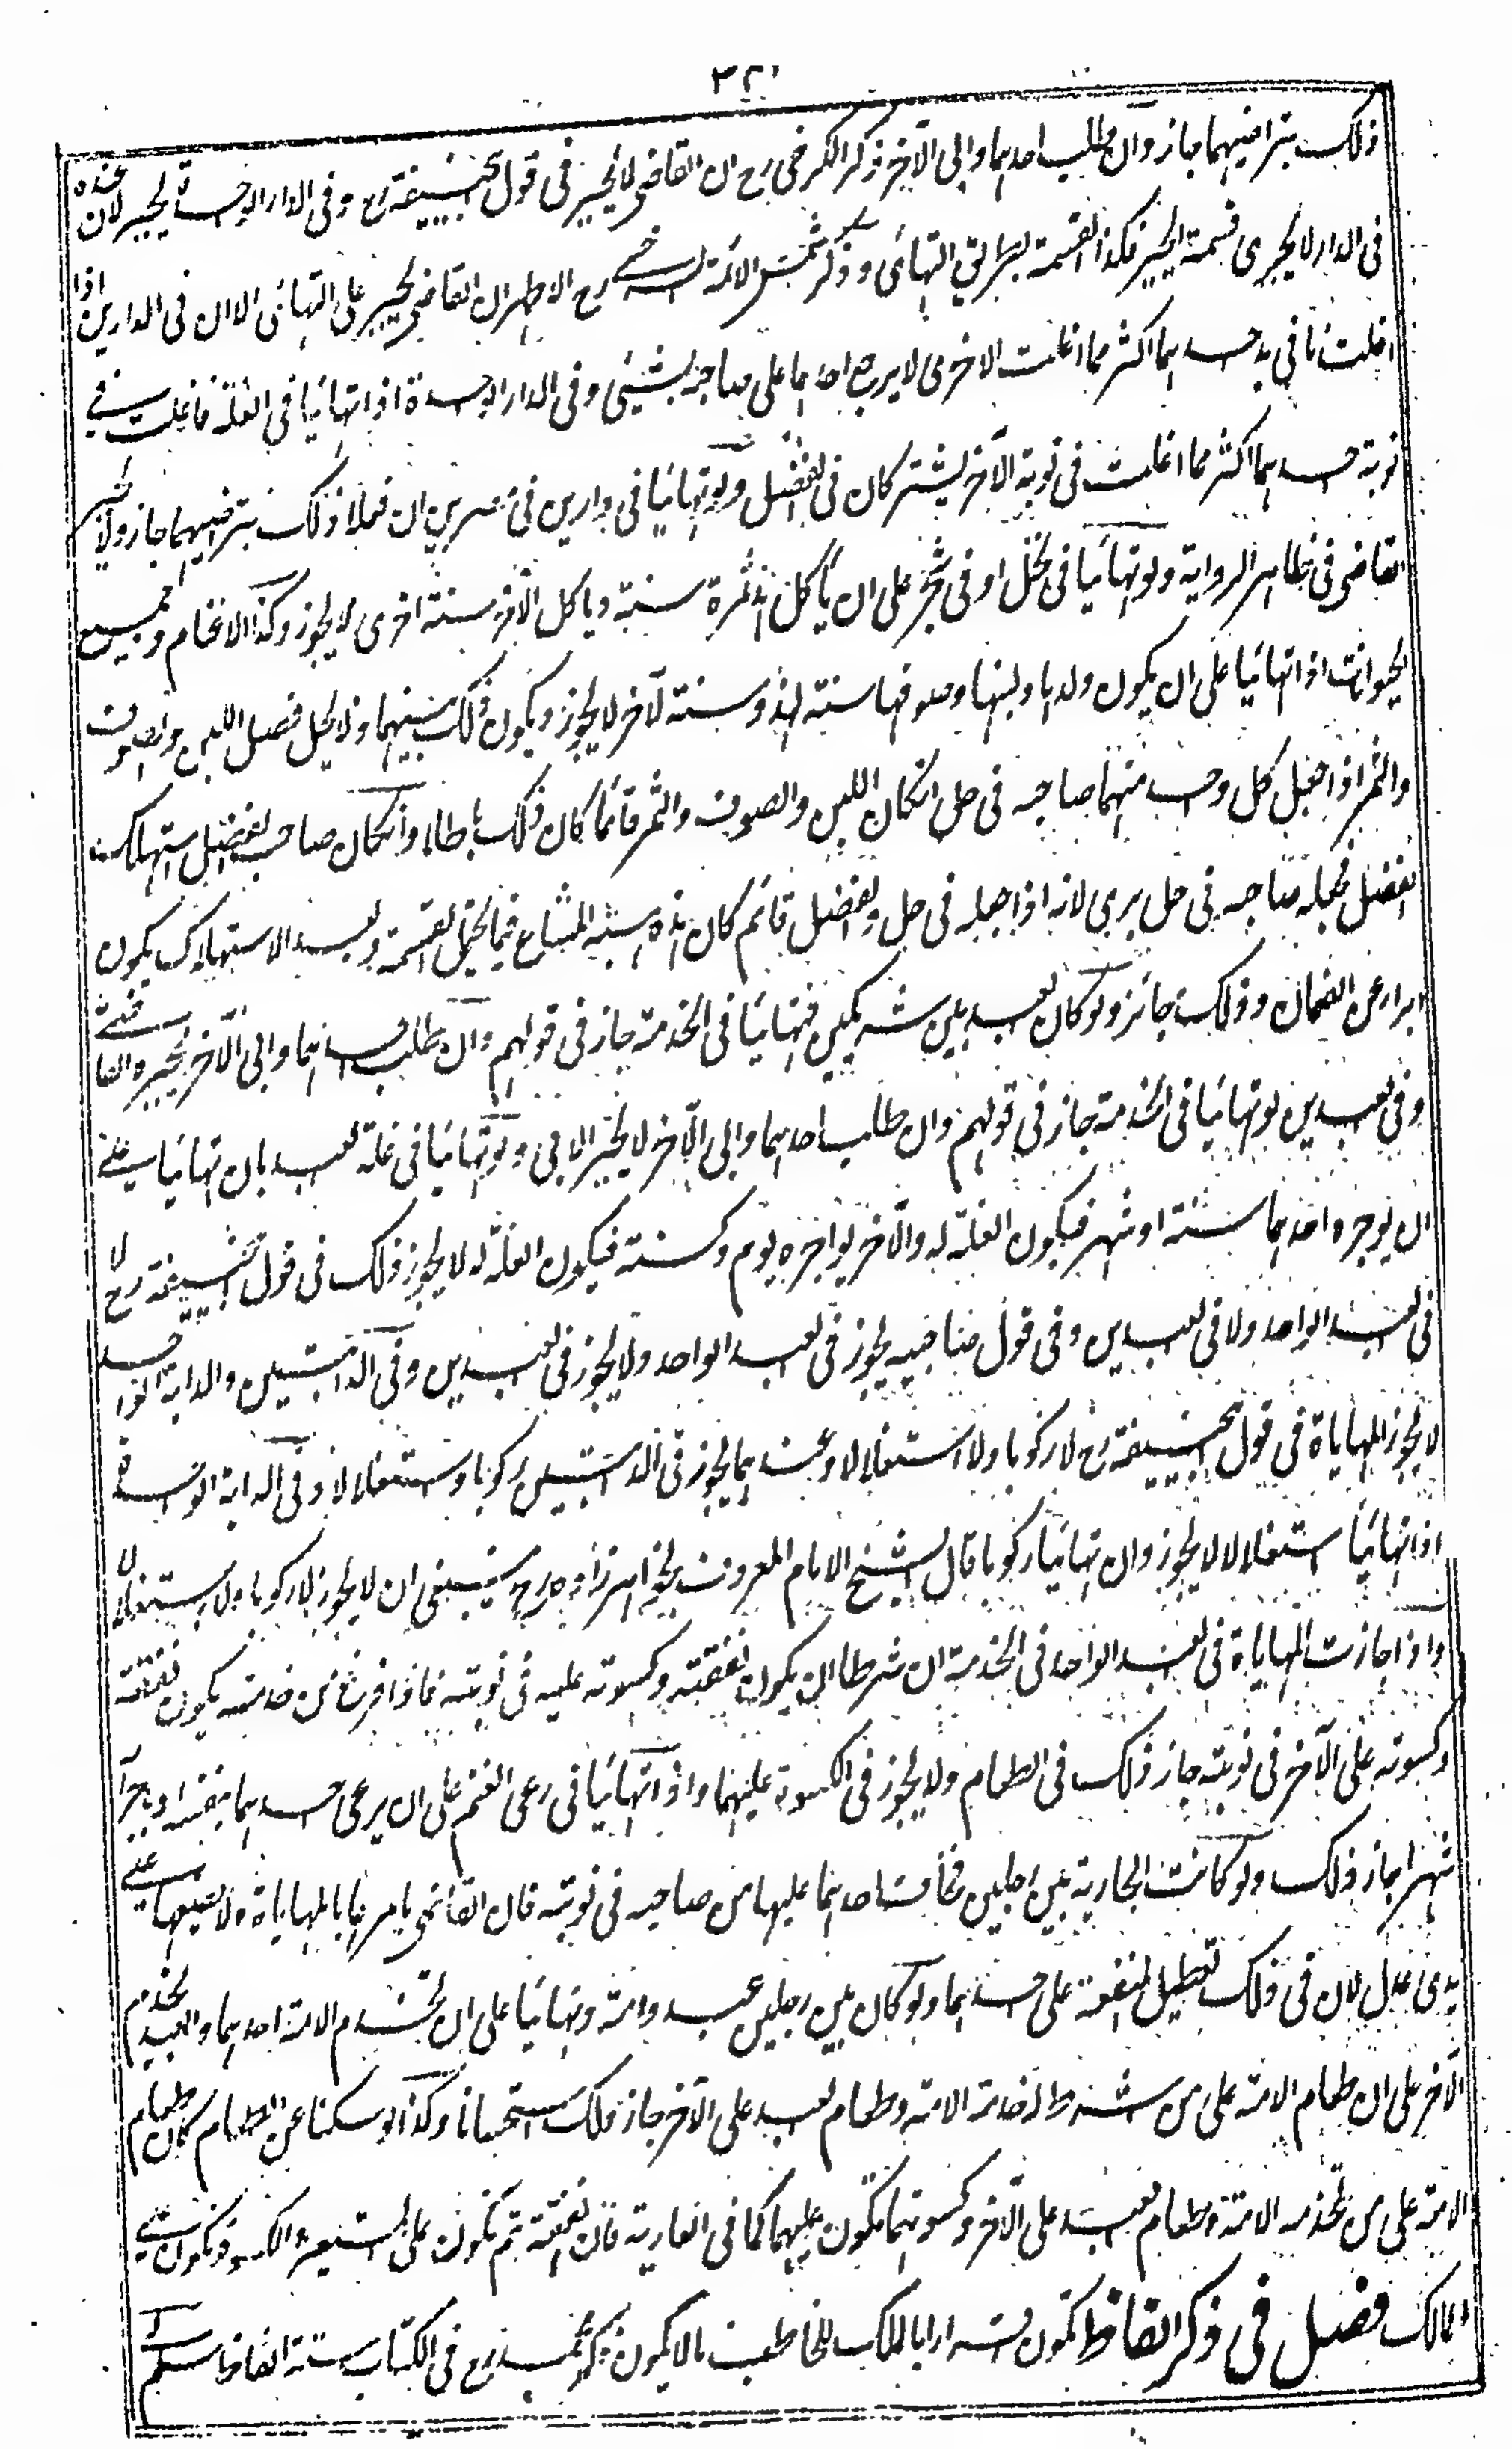 ٣٢٠
ذلك بتراضيهما جاز وان طلب احدهما وابى الآخر ذكر الكرخى رح ان القاضى لا يجبر فى قول ابيحنيفة رح وفى الدار الواحدة يجبر لان عنده
فى الدار لا يجرى قسمة الجبر فكذا القسمة بطريق التهائى وذكر شمس الائمة السرخسى رح الاظهر ان القاضى يجبر على التهائى الا ان فى الدارين اذا
اغلت ما فى يد احدهما اكثر مما اغلت الاخرى لا يرجع احدهما على صاحبه بشئ وفى الدار الواحدة اذا تهائيا فى الغلة فاغلت فى
نوبة احدهما اكثر مما اغلت فى نوبة الآخر يشتركان فى الفضل ولو تهائيا فى دارين فى مصرين ان فعلا ذلك بتراضيهما جاز ولا يجبر
القاضى فى ظاهر الرواية ولو تهائيا فى نخل او فى شجر على ان يأكل هذا ثمرة سنة وياكل الآخر سنة اخرى لا يجوز وكذا الاغنام وجميع
الحيوانات اذا تهائيا على ان يكون ولدها ولبنها وصوفها سنة لهذا وسنة لآخر لا يجوز ويكون ذلك بينهما ولا يحل فضل اللبن والصوف
والثمر اذا جعل كل واحد منهما صاحبه فى حل ان كان اللبن والصوف والثمر قائما كان ذلك باطلا وان كان صاحب الفضل استهلك
الفضل فجعله صاحبه فى حل برى لانه اذا جعله فى حل والفضل قائم كان هذه هبة المشاع فيما يحتمل القسمة وبعد الاستهلاك يكون
ابراء عن الضمان وذلك جائز ولو كان العبد بين شريكين فتهائيا فى الخدمة جاز فى قولهم وان طلب احدهما وابى الآخر يجبره القاضى
وفى العبدين لو تهائيا فى الخدمة جاز فى قولهم وان طلب احدهما وابى الآخر لا يجبر الابى ولو تهائيا فى غلة العبد بان تهائيا على
ان يوجره احدهما سنة او شهر فيكون الغلة له والآخر يواجره يوم وسنة فيكون الغلة له لا يجوز ذلك فى قول ابيحنيفة رح لا
فى العبد الواحد ولا فى العبدين وفى قول صاحبيه يجوز فى العبد الواحد ولا يجوز فى العبدين وفى الدابتين والدابة الواحدة
لا يجوز المهاياة فى قول ابيحنيفة رح لا ركوبا ولا استغلالا وعندهما يجوز فى الدابتين ركوبا واستغلالا وفى الدابة الواحدة
اذا تهائيا استغلالا لا يجوز وان تهائيا ركوبا قال الشيخ الامام المعروف بخواهرزاده رح ينبغى ان لا يجوز لا ركوبا ولا استغلالا
واذا جازت المهاياة فى العبد الواحد فى الخدمة ان شرطا ان يكون نفقته وكسوته عليه فى نوبته فاذا فرغ من خدمته يكون نفقته
وكسوته على الآخر فى نوبته جاز ذلك فى الطعام ولا يجوز فى الكسوة عليهما واذا تهائيا فى رعى الغنم على ان يرعى احدهما بنفسه او باجرآ
شهرا جاز ذلك ولو كانت الجارية بين رجلين فخاف احدهما عليها من صاحبه فى نوبته فان القاضى يامرهما بالمهاياة ولا يضعها على
يدى عدل لان فى ذلك تعطيل المنفعة على احدهما ولو كان بين رجلين عبد وامة وتهائيا على ان تخدم الامة احدهما والعبد يخدم
الآخر على ان طعام الامة على من شرط له خدمة الامة وطعام العبد على الآخر جاز ذلك استحسانا وكذا لو سكتا عن الطعام كان طعام
الامة على من تخدمه الامة وطعام العبد على الآخر وكسوتهما تكون عليهما كما فى العارية فان النفقة ثم تكون على المستعير والكسوة تكون على
المالك فصل فى ذكر الفاظ تكون اقرارا بالملك للمخاطب ما لا يكون ذكر محمد رح فى الكتاب ستة الفاظ